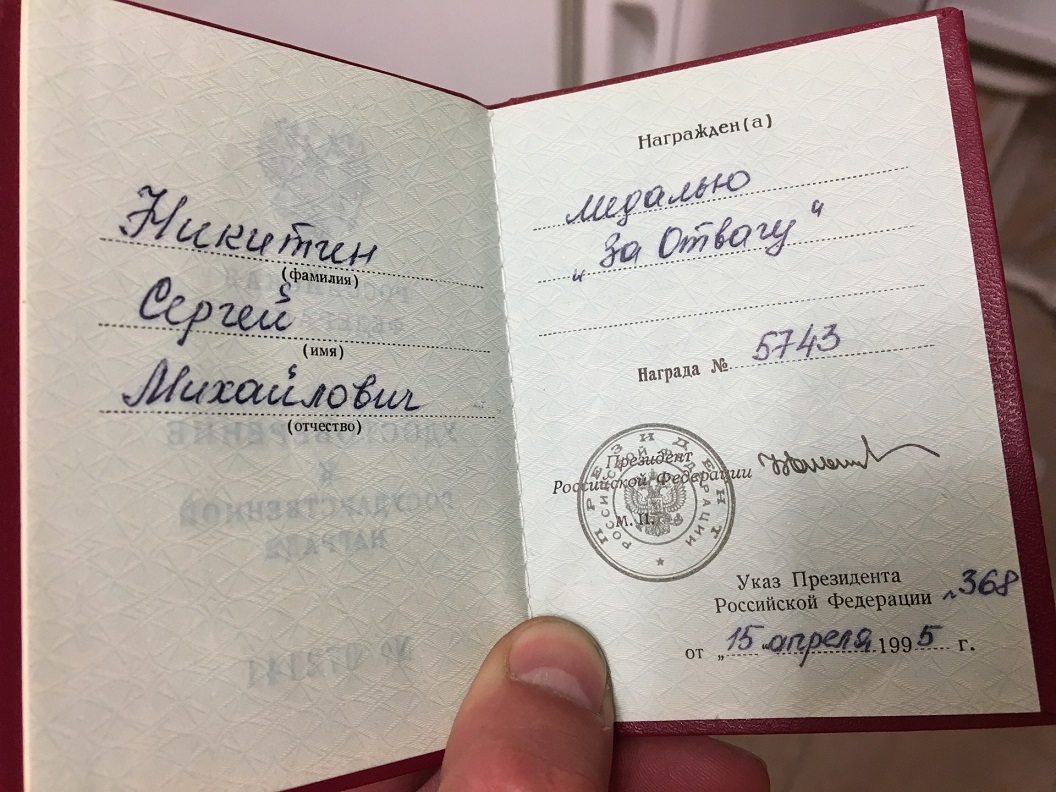 Никитин
(фамилия)
Сергей
(имя)
Михайлович
(отчество)
Награжден(а)
медалью
„За Отвагу“
Награда № 5743
Президент
Российской Федерации
М. П.
ПРЕЗИДЕНТ
РОССИЙСКОЙ ФЕДЕРАЦИИ
Указ Президента
Российской Федерации № 368
от „15“ апреля 1995 г.
РОССИЙСКАЯ
УДОСТОВЕРЕНИЕ
К
ГОСУДАРСТВЕННОЙ
НАГРАДЕ